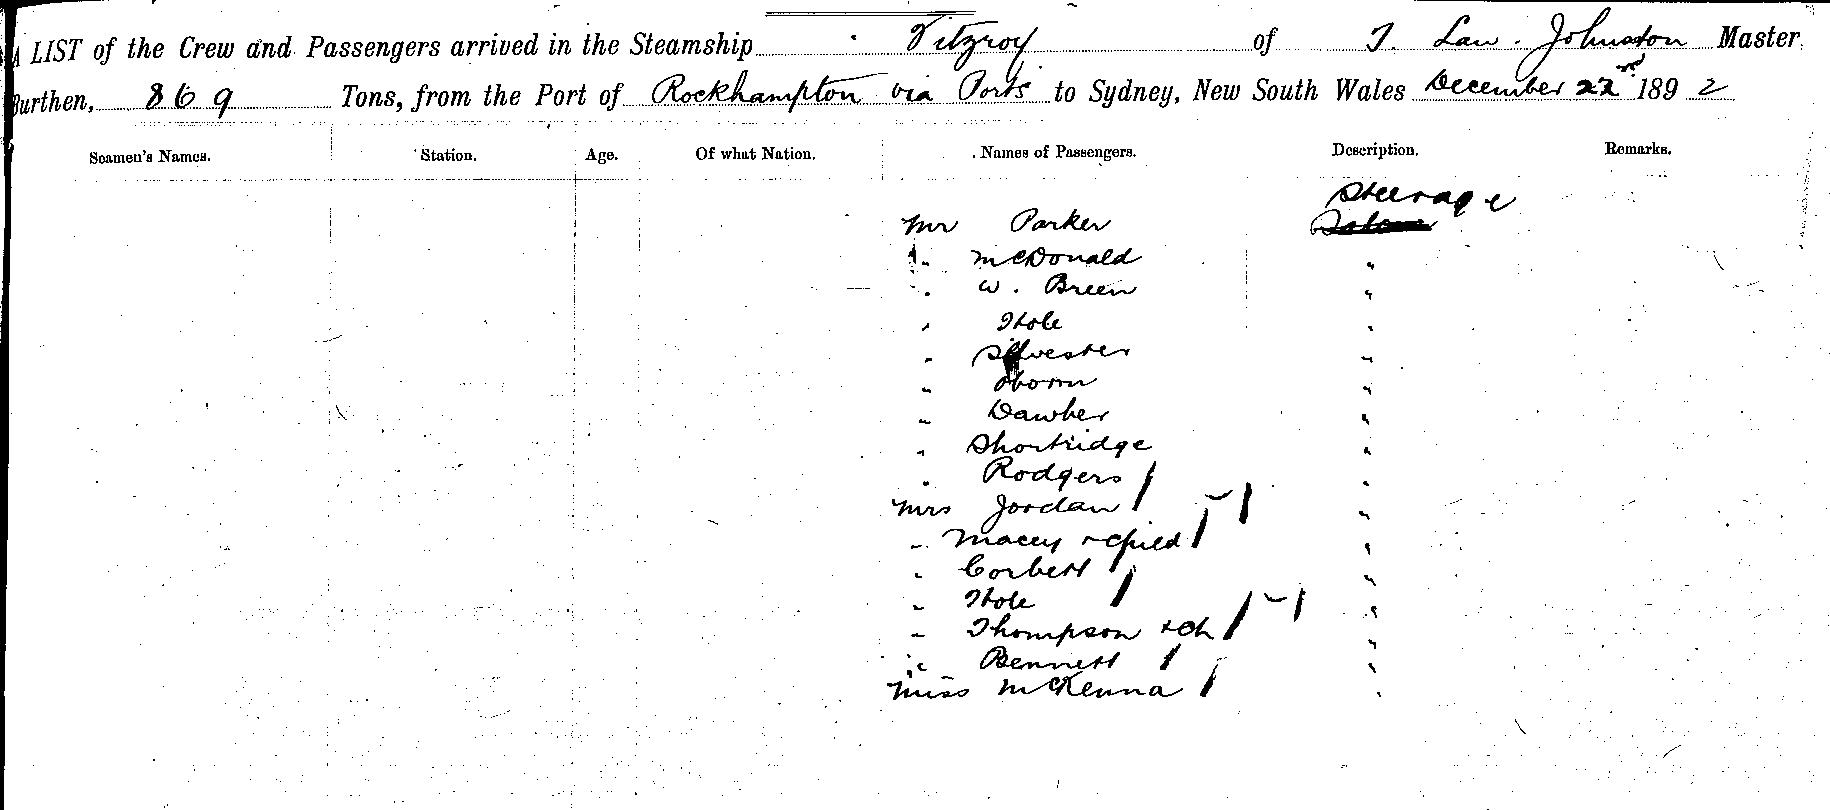 A LIST of the Crew and Passengers arrived in the Steamship Fitzroy of T. Law. Johnston Master
Burthen, 869 Tons, from the Port of Rockhampton via Ports to Sydney, New South Wales December 22nd 1892
Seamen's Names. Station. Age. Of what Nation. Names of Passengers. Description. Remarks.
Steerage
Mr Parker
" McDonald "
" W. Breen "
" Hole "
" Silvester "
" Oborn "
" Dawber "
" Shortridge "
" Rodgers "
Mrs Jordan "
" Macey + child "
" Corbett "
" Hole "
" Thompson + ch "
" Bennett "
Miss McKenna "